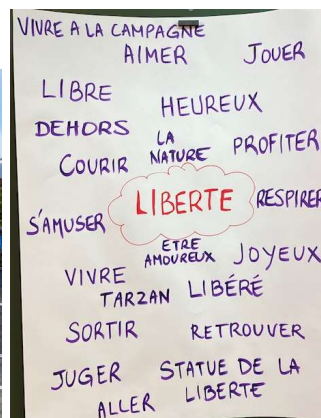 VIVRE A LA CAMPAGNE
AIMER
JOUER
LIBRE
HEUREUX
DEHORS
LA
NATURE
PROFITER
COURIR
LIBERTE
RESPIRER
S'AMUSER
ETRE
AMOUREUX
JOYEUX
VIVRE
TARZAN
LIBÉRÉ
SORTIR
RETROUVER
JUGER
STATUE DE LA
LIBERTE
ALLER